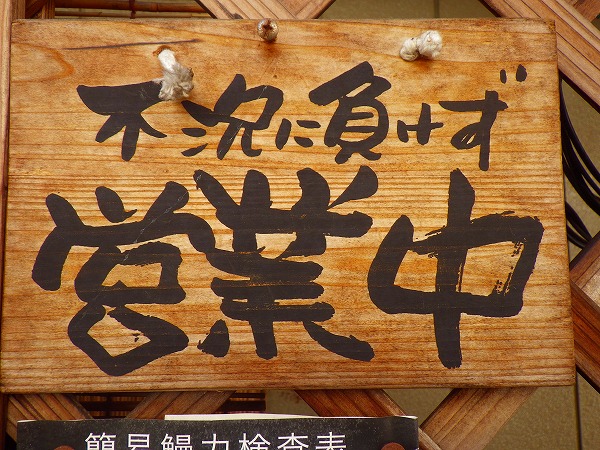 不況に負けず
営業中
簡易鰻力検査表